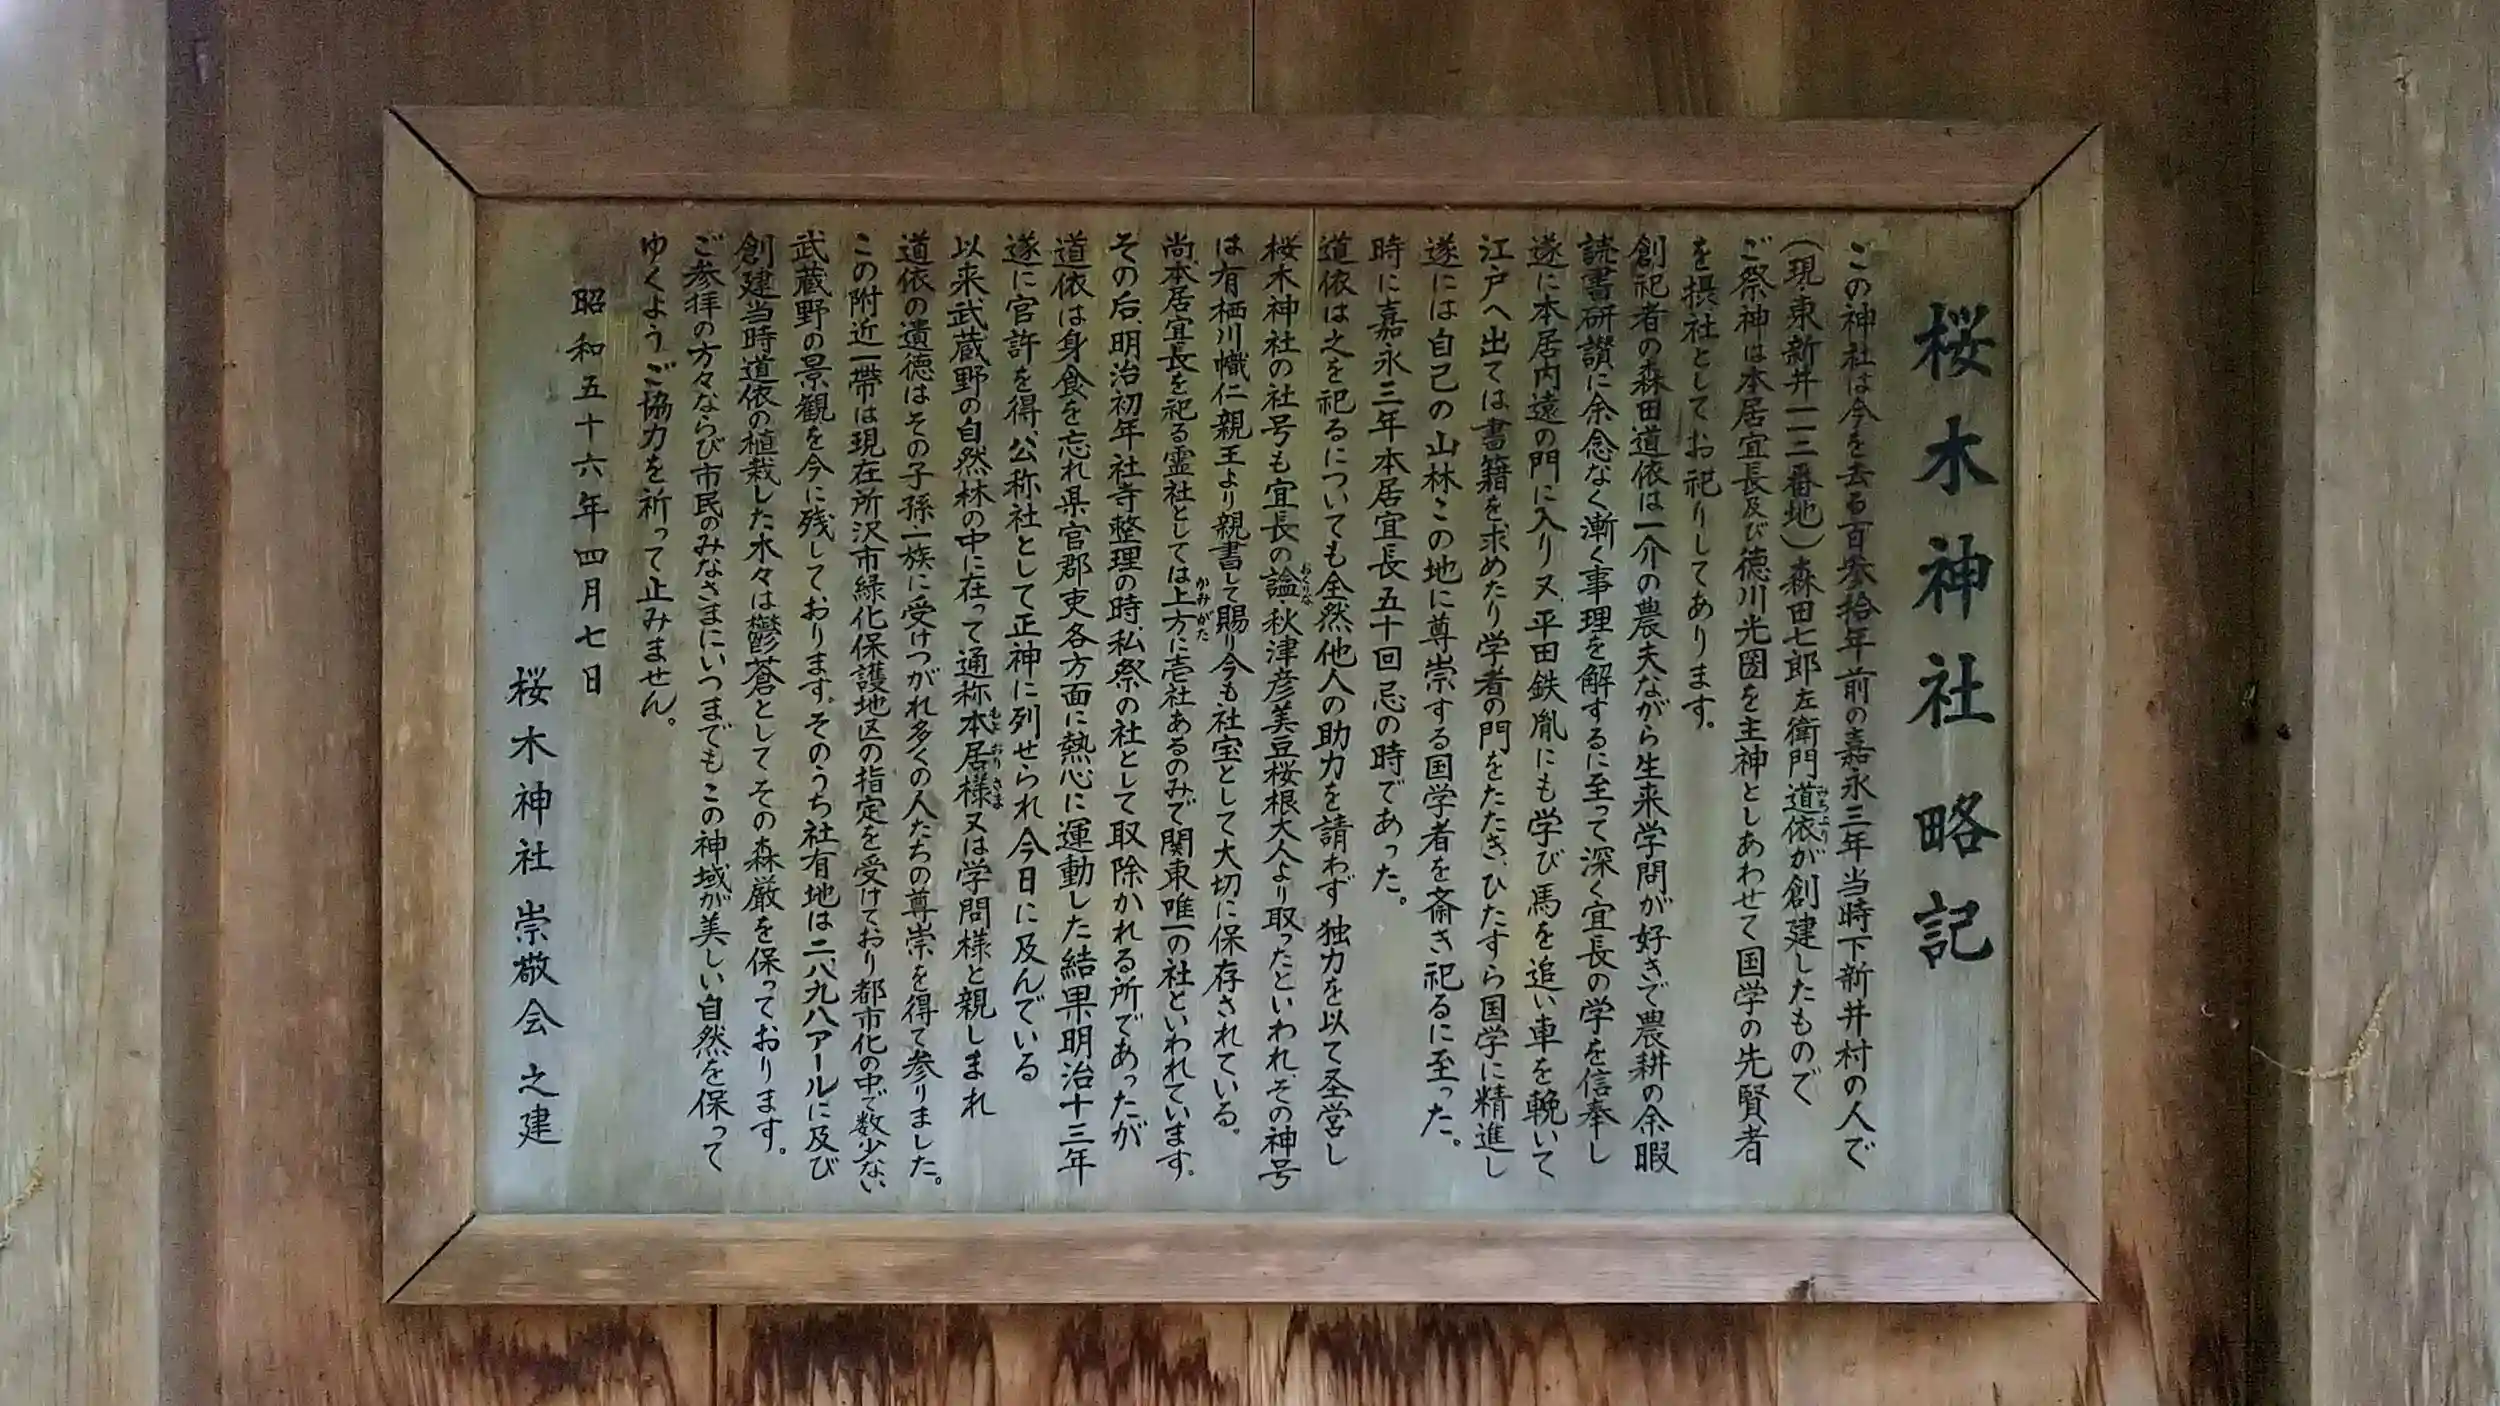 桜木神社略記
この神社は今を去る百参拾年前の嘉永三年当時下新井村の人で
(現・東新井一一三番地)森田七郎左衛門道依が創建したもので
ご祭神は本居宣長及び徳川光圀を主神としあわせて国学の先賢者
を摂社としてお祀りしてあります。
創祀者の森田道依は一介の農夫ながら生来学問が好きで農耕の余暇
読書研讃に余念なく漸く事理を解するに至って深く宣長の学を信奉し
遂に本居内遠の門に入り又、平田鉄胤にも学び馬を追い車を輓いて
江戸へ出ては書籍を求めたり学者の門をたたき、ひたすら国学に精進し
遂には自己の山林この地に尊崇する国学者を斎き祀るに至った。
時に嘉永三年本居宣長五十回忌の時であった。
道依は之を祀るについても全然他人の助力を請わず独力を以て圣営し
桜木神社の社号も宣長の諡・秋津彦美豆桜根大人より取ったといわれ、その神号
は有栖川幟仁親王より親書して賜り今も社宝として大切に保存されている。
尚本居宣長を祀る霊社としては上方に壱社あるのみで関東唯一の社といわれています。
その后、明治初年社寺整理の時、私祭の社として取除かれる所であったが
道依は身食を忘れ県官郡吏各方面に熱心に運動した結果明治十三年
遂に官許を得、公称社として正神に列せられ今日に及んでいる
以来武蔵野の自然林の中に在って通称本居様又は学問様と親しまれ
道依の遺徳はその子孫一族に受けつがれ多くの人たちの尊崇を得て参りました。
この附近一帯は現在所沢市緑化保護地区の指定を受けており都市化の中で数少ない
武蔵野の景観を今に残しております。そのうち社有地は二八、九八アールに及び
創建当時道依の植栽した木々は鬱蒼としてその森厳を保っております。
ご参拝の方々ならび市民のみなさまにいつまでもこの神域が美しい自然を保って
ゆくようご協力を祈って止みません。
昭和五十六年四月七日
桜木神社崇敬会之建